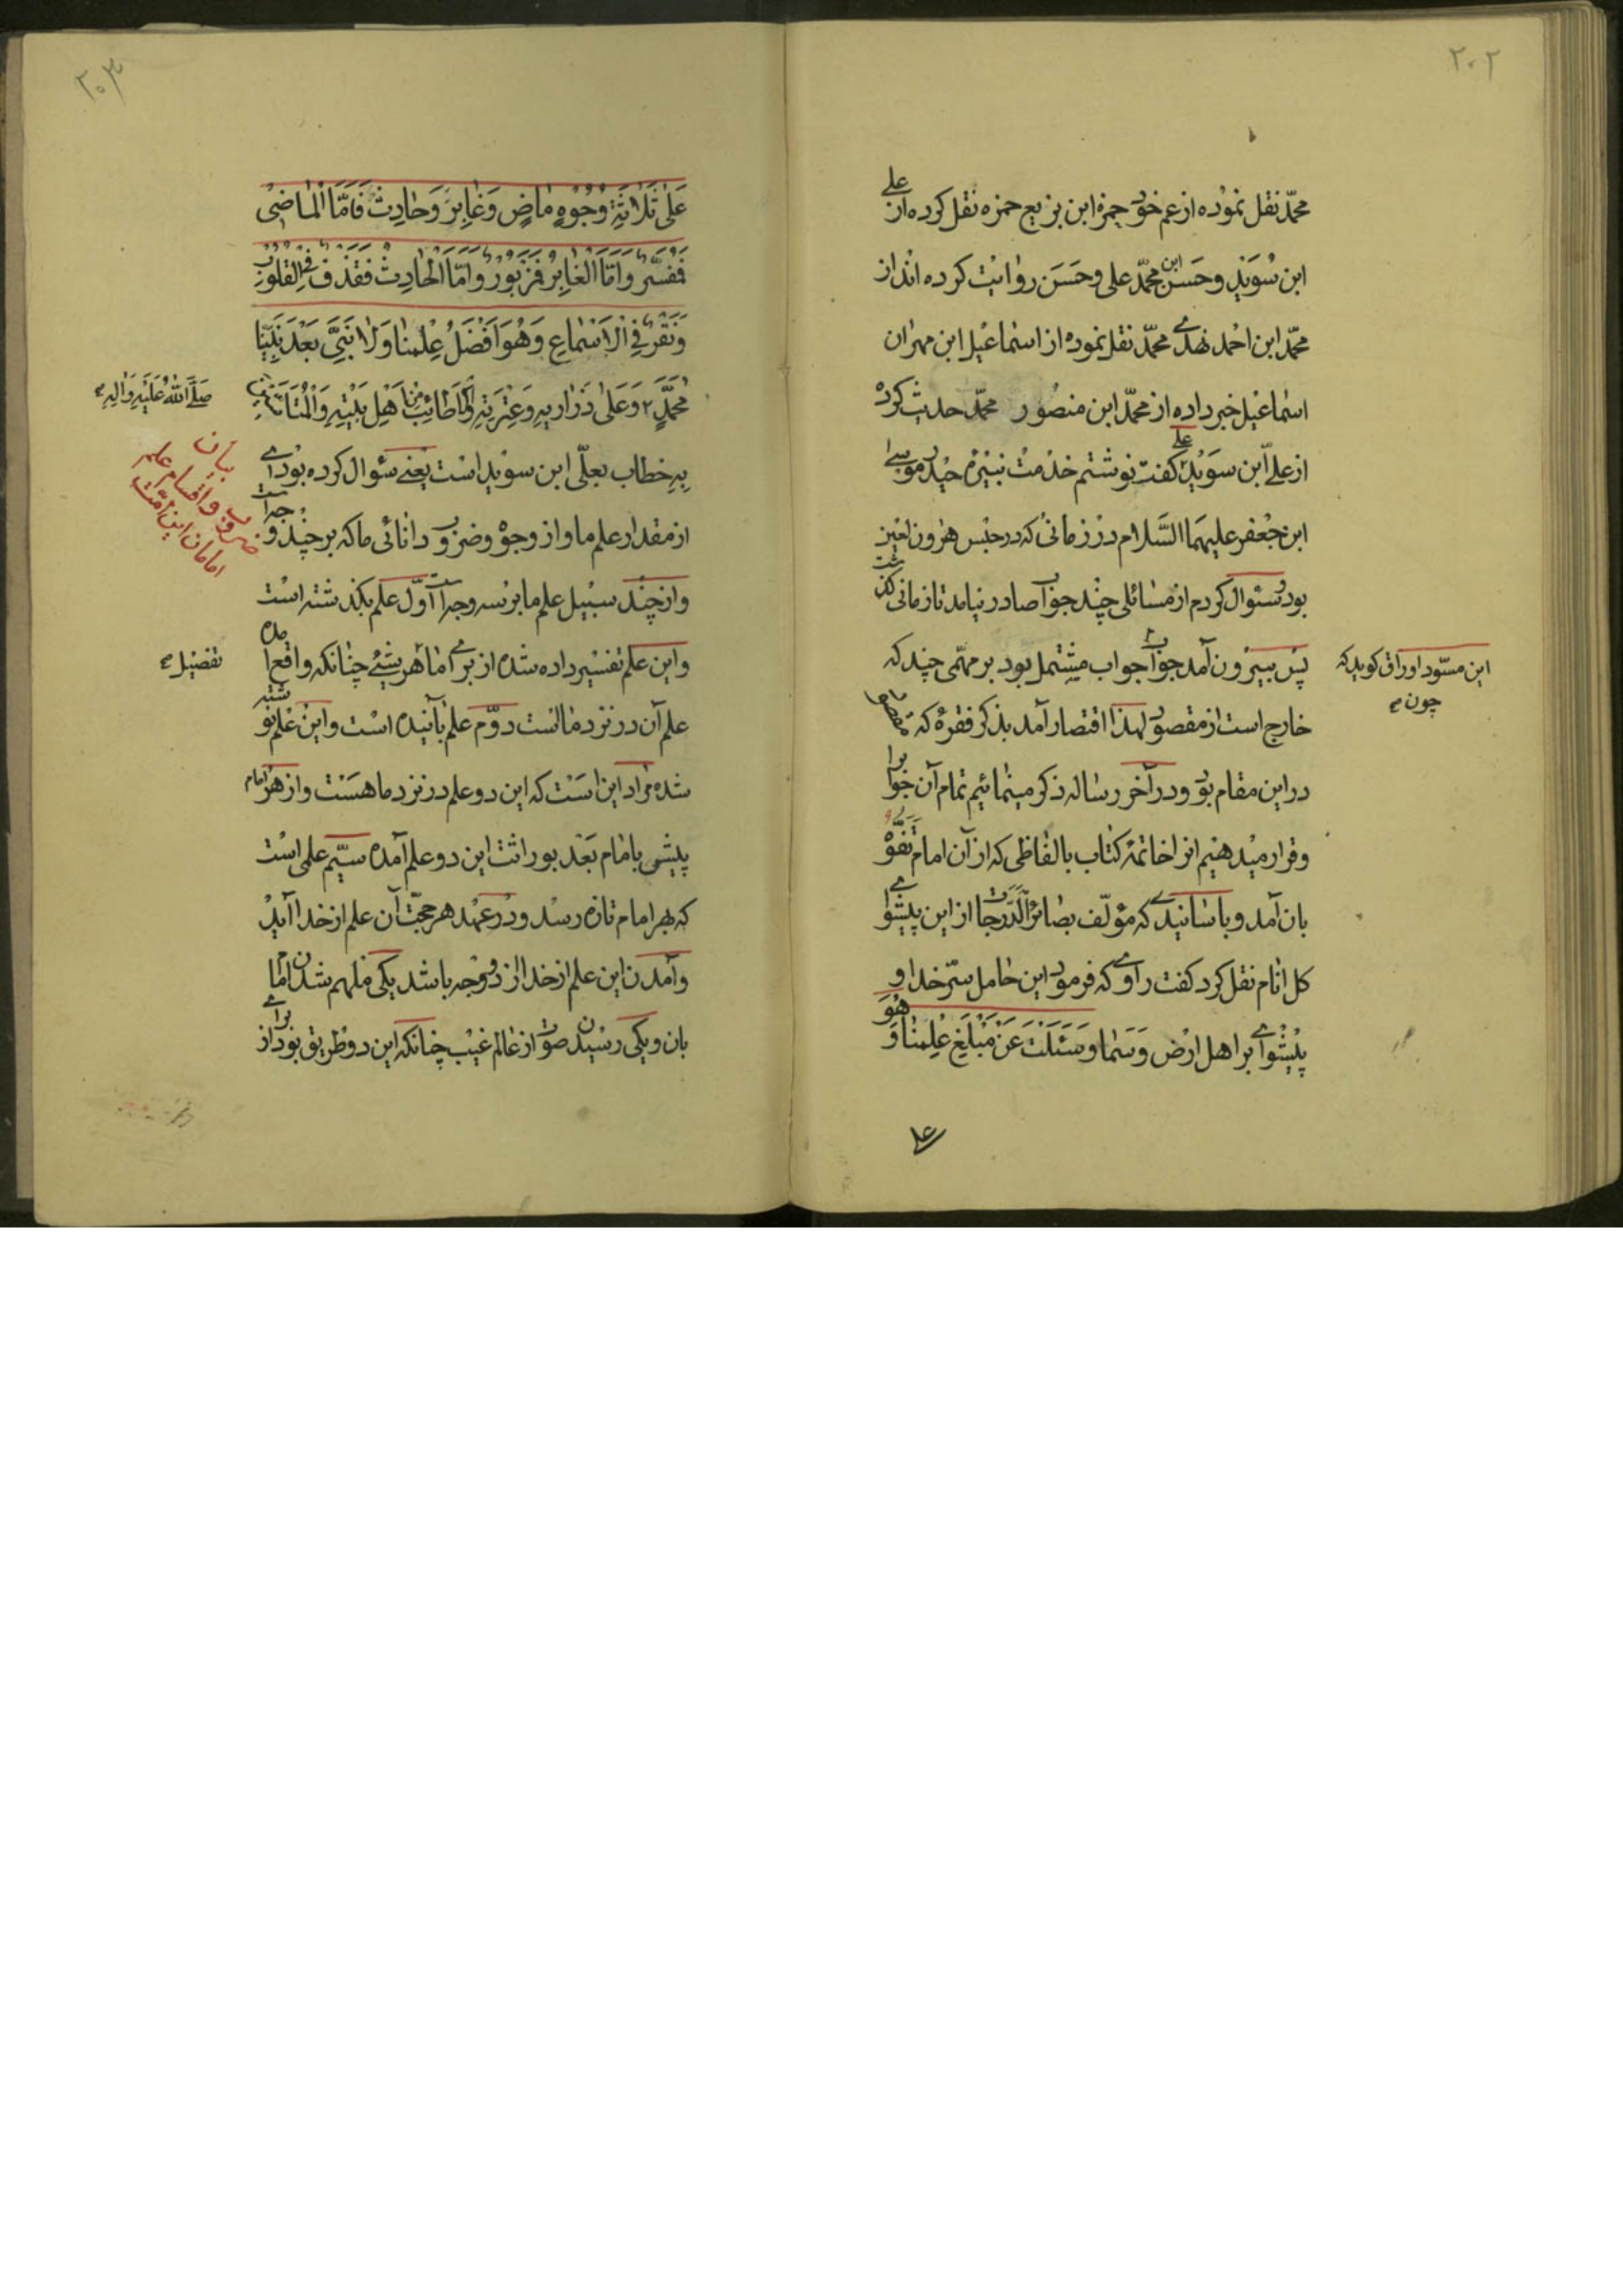 ٢٠٢
محمّد نقل نموده از عم خود حمزة ابن بزیع حمزه نقل کرده از علی
ابن سُوَید و حَسَن ابن محمّد علی و حَسَن روایت کرده‌اند از
محمّد ابن احمد نهدی محمّد نقل نموده از اسماعیل ابن مهران
اسماعیل خبر داده از محمّد ابن منصُور محمّد حدیث کرده
از علی ابن سوَید علی کفت نوشتم خدمت نبیرهٔ حیدر موسی
ابن جعفر علیهما السَّلام در زمانی که در حبس هٰرون لعین
بود سئوال کردم از مسائلی چند جواب صادر نیامد تا زمانی کذشت
پس بیرون آمد جواب جواب مشتمل بود بر مهمّی چند که
این مسوّد اوراق کوید که
چون
خارج است از مقصود لهذا اقتصار آمد بذکر فقرهٔ که
در این مقام بود و در آخر رساله ذکر مینمائیم تمام آن جوابرا
و قرار میدهیم انرا خاتمهٔ کتاب بالفاظی که از آن امام تَفَوُّه
بان آمد و باسانیدی که مؤلّف بصائر الدَّرَجات از این پیشوای
کل انام نقل کرد کفت راوی که فرمود این حامل سرّ خدا و
پیشوای بر اهل ارض و سَما وَسَئَلْتَ عَنْ مَبْلَغِ عِلْمِنٰا وَ هُوَ
٢٠٣
عَلٰی ثَلٰاثَةِ وُجُوهٍ مٰاضٍ وَغٰابِرٍ وَحٰادِثٍ فَاَمَّا الْمٰاضی
فَمُفَسَّرٌ وَاَمَّا الْغٰابِرُ فَمَزْبُورٌ وَاَمَّا الْحٰادِثُ فَقَذْفٌ فِی الْقُلُوبِ
وَنَقْرٌ فِی الْاَسْمٰاعِ وَهُوَ اَفْضَلُ عِلْمِنٰا وَلٰا نَبِیَّ بَعْدَ نَبِیِّنٰا
مُحَمَّدٍ ٢ وَعَلٰی ذَرٰاریهِ وَعِتْرَتِهِ الْاَطٰائِبِ مِنْ اَهْلِ بَیْتِهِ
صَلَّی اللهُ عَلَیْهِ وَاٰلِهِ
خطاب بعلّی ابن سوید است یعنی سئوال کرده بودی
بیان
ضروب و اقسام علم
امامان این امّت
از مقدار علم ما و از وجوه و ضروب دانائی ما که بر چند وجه است
و از چند سبیل علم ما بر سه وجه است اوّل علم بکذشته است
و این علم تفسیر داده شده از برای اما هر شیئ چنانکه واقع آمده
تفصیل
علم آن در نزد مااست دوّم علم بآینده است و این علم نوشته
شده مراد این است که این دو علم در نزد ما هست و از هر امام
پیشی بامام بعد بوراثت این دو علم آمده سیّم علمی است
که بهر امام تازه رسد و در عهد هر حجّت آن علم از خدا آید
و آمدن این علم از خدا از دو وجه باشد یکی ملهم شدن اما
بان و یکی رسیدن صوت از عالم غیب چنانکه این دو طریق بود از برای